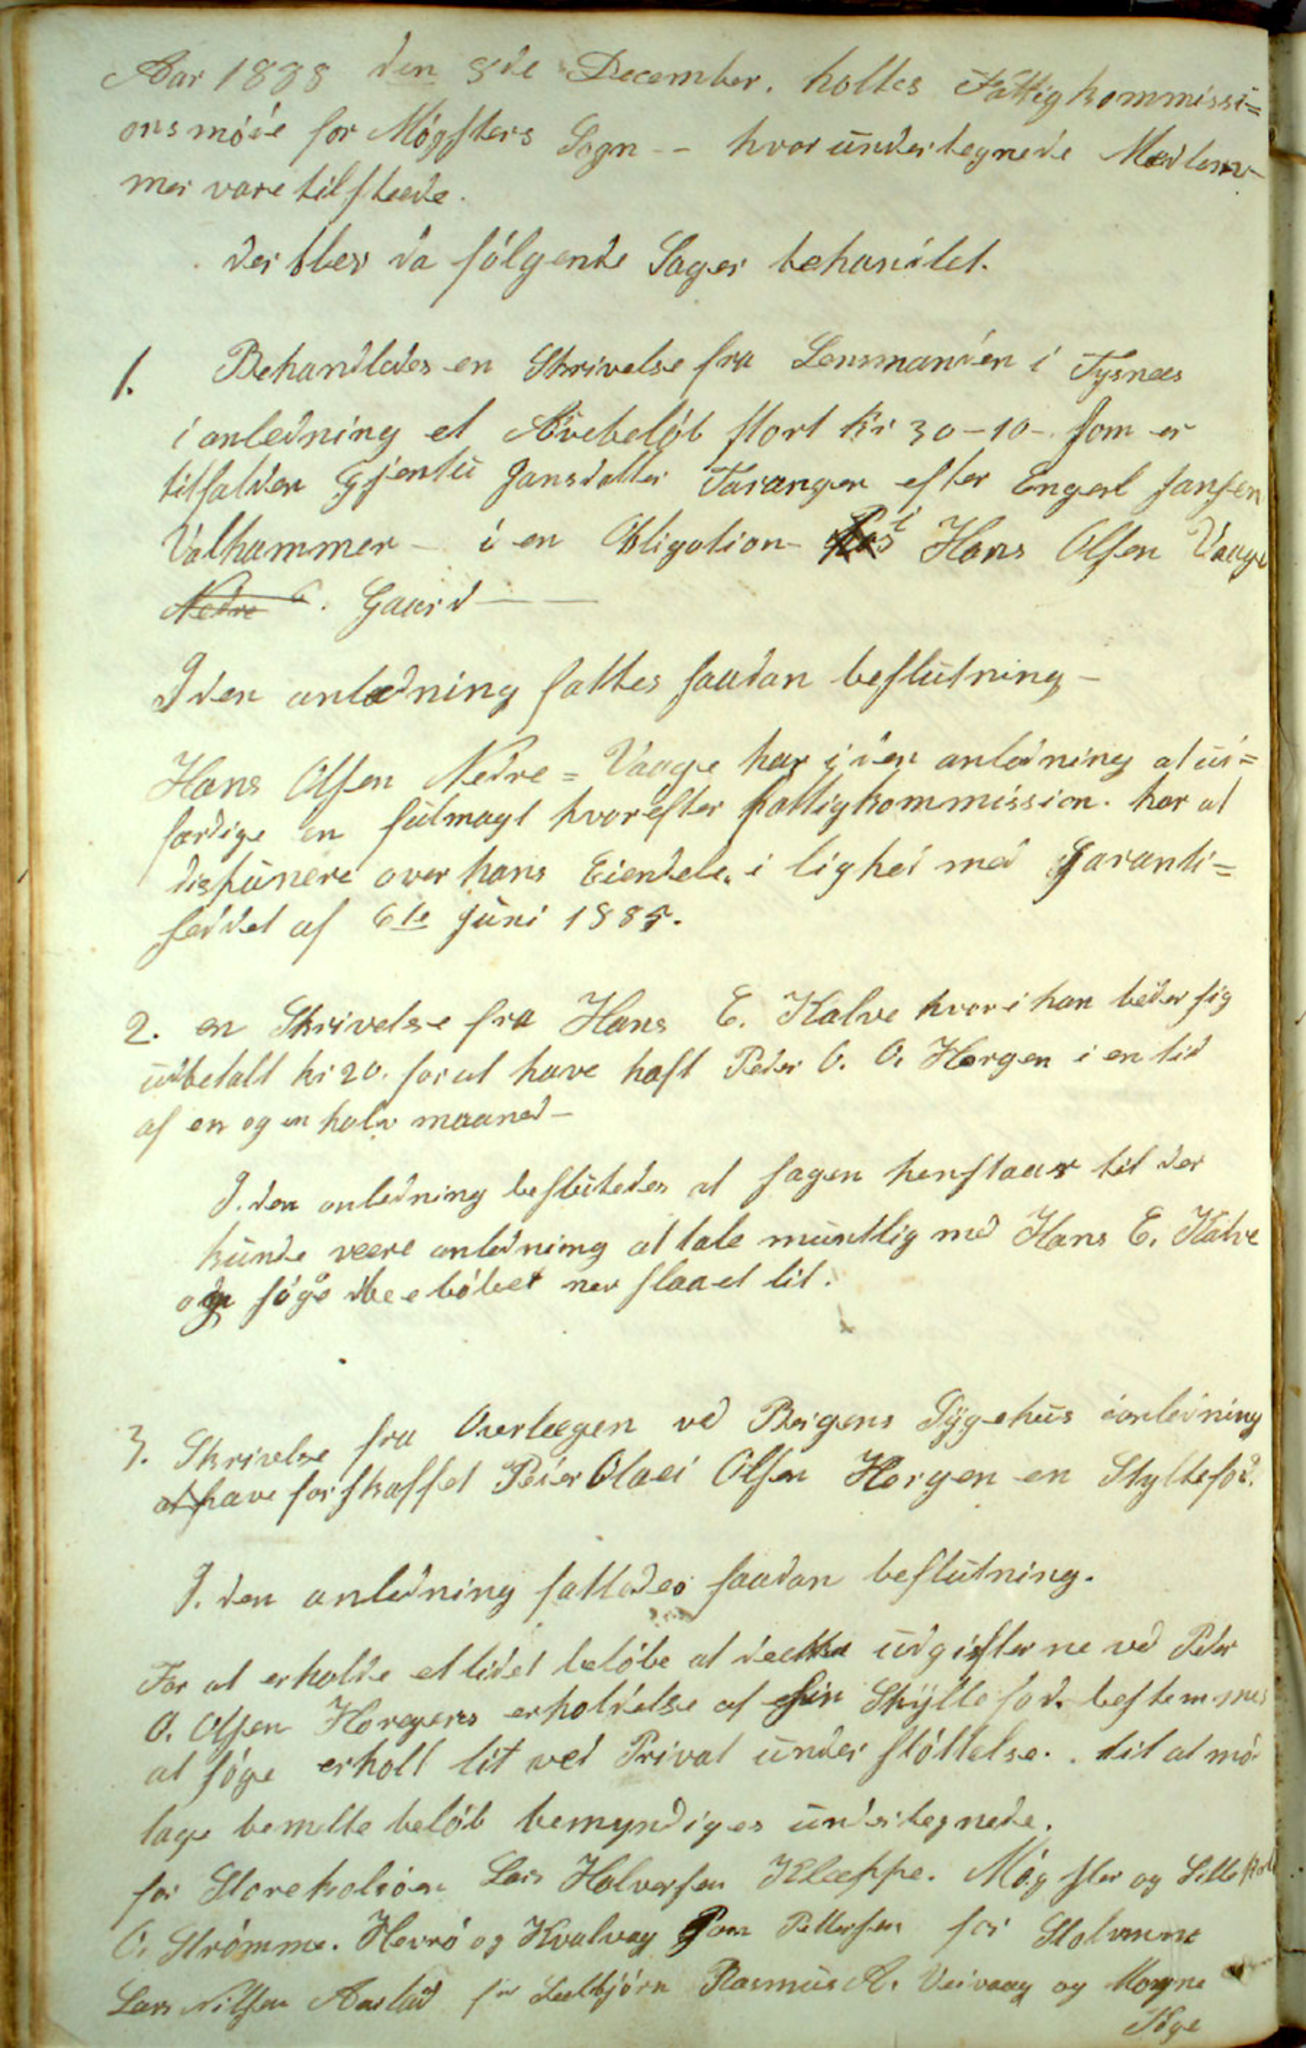 Aar 1888 den 8de December. holtes Fattigkommissi=
onsmøde for Møgsters Sogn -- hvor undertegnede Medlem-
mer vare tilstæde.
der blev da følgende Sager behandlet.
1. Behandledes en Skrivelse fra Lensmanden i Tysnæs
i anledning et Arvebeløb stort Kr 30-10- som er
tilfalden Gjentu Jansdatter Taranger efter Engerl Jansen
Valhammer - i en Obligation i Hans Olsen Vaage
Nedre . Gaard --
I den anledning fattes saadan beslutning -
Hans Olsen Nedre = Vaage har i den anledning at ud=
færdige en fulmagt hvorefter fattigkommission. har at
dispunere over hans Eiendele. i lighed med Garanti=
seddel af 6te Juni 1885.
2. en Skrivelse fra Hans E. Kalve hvori han beder sig
udbetalt kr 20. for at have haft Peder O. O. Horgen i en tid
af en og en halv maaned -
I. den anledning besluttedes at sagen henstaar til der
kunde være anledning at tale muntlig med Hans E. Kalve
og søge beløbet ner slaaet lit.
3. Skrivelse fra Overlægen ved Bergens Sygehus ianledning
at have forskaffet Peder Olaei Olsen Horgen en Styltefod.
I. den anledning fattedes saadan beslutning.
For at erholde et lidet beløbe at dække udgifterne ved Peder
O. Olsen Horgens erholdelse af sin Stÿltefod. bestemmes
at søge erholt lit ved Privat understøttelse. . til at mod
tage bemelte beløb bemyndiges undertegnede.
for Storekalsøen Lars Halversen Kleppe. Møgster og Lille
O. Strømme. Hevrø og Kvalvaag Pettersen for Stolmene
Lars Nilsen Aarland for Selbjørn Rasmus A. Veivaag og Mogne
Søge